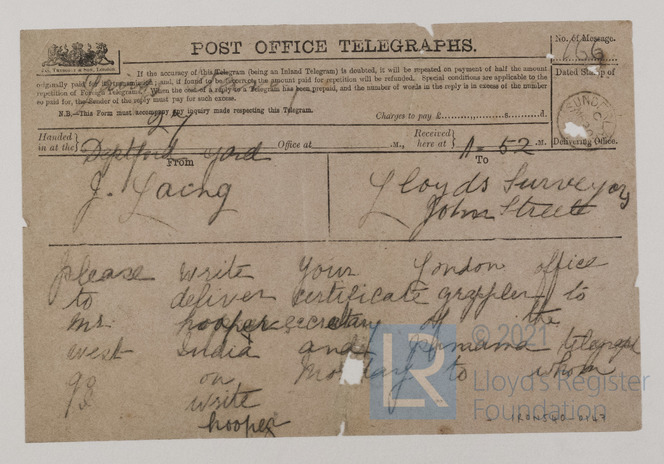 POST OFFICE TELEGRAPHS.
No. of Message.
166
If the accuracy of this Telegram (being an Inland Telegram) is doubted, it will be repeated on payment of half the amount
originally paid for its transmission; and, if found to be incorrect, the amount paid for repetition will be refunded. Special conditions are applicable to the
repetition of Foreign Telegrams. When the cost of a reply to a Telegram has been prepaid, and the number of words in the reply is in excess of the number
so paid for, the sender of the reply must pay for such excess.
N.B.—This Form must accompany any inquiry made respecting this Telegram.
Charges to pay £ s. d.
Dated Stamp of
Delivering Office.
27
Handed in at the
Deptford yard
Office at M.,
Received here at
52 .M.
From
J. Laing
To
Lloyds Surveyors
John Street
please write your London office
to deliver certificate grappler to
mr hooper secretary of the
west India and panama telegraph
on Monday to whom
write
hooper
© 2021
LR
Lloyd's Register
Foundation
IRON540-0147